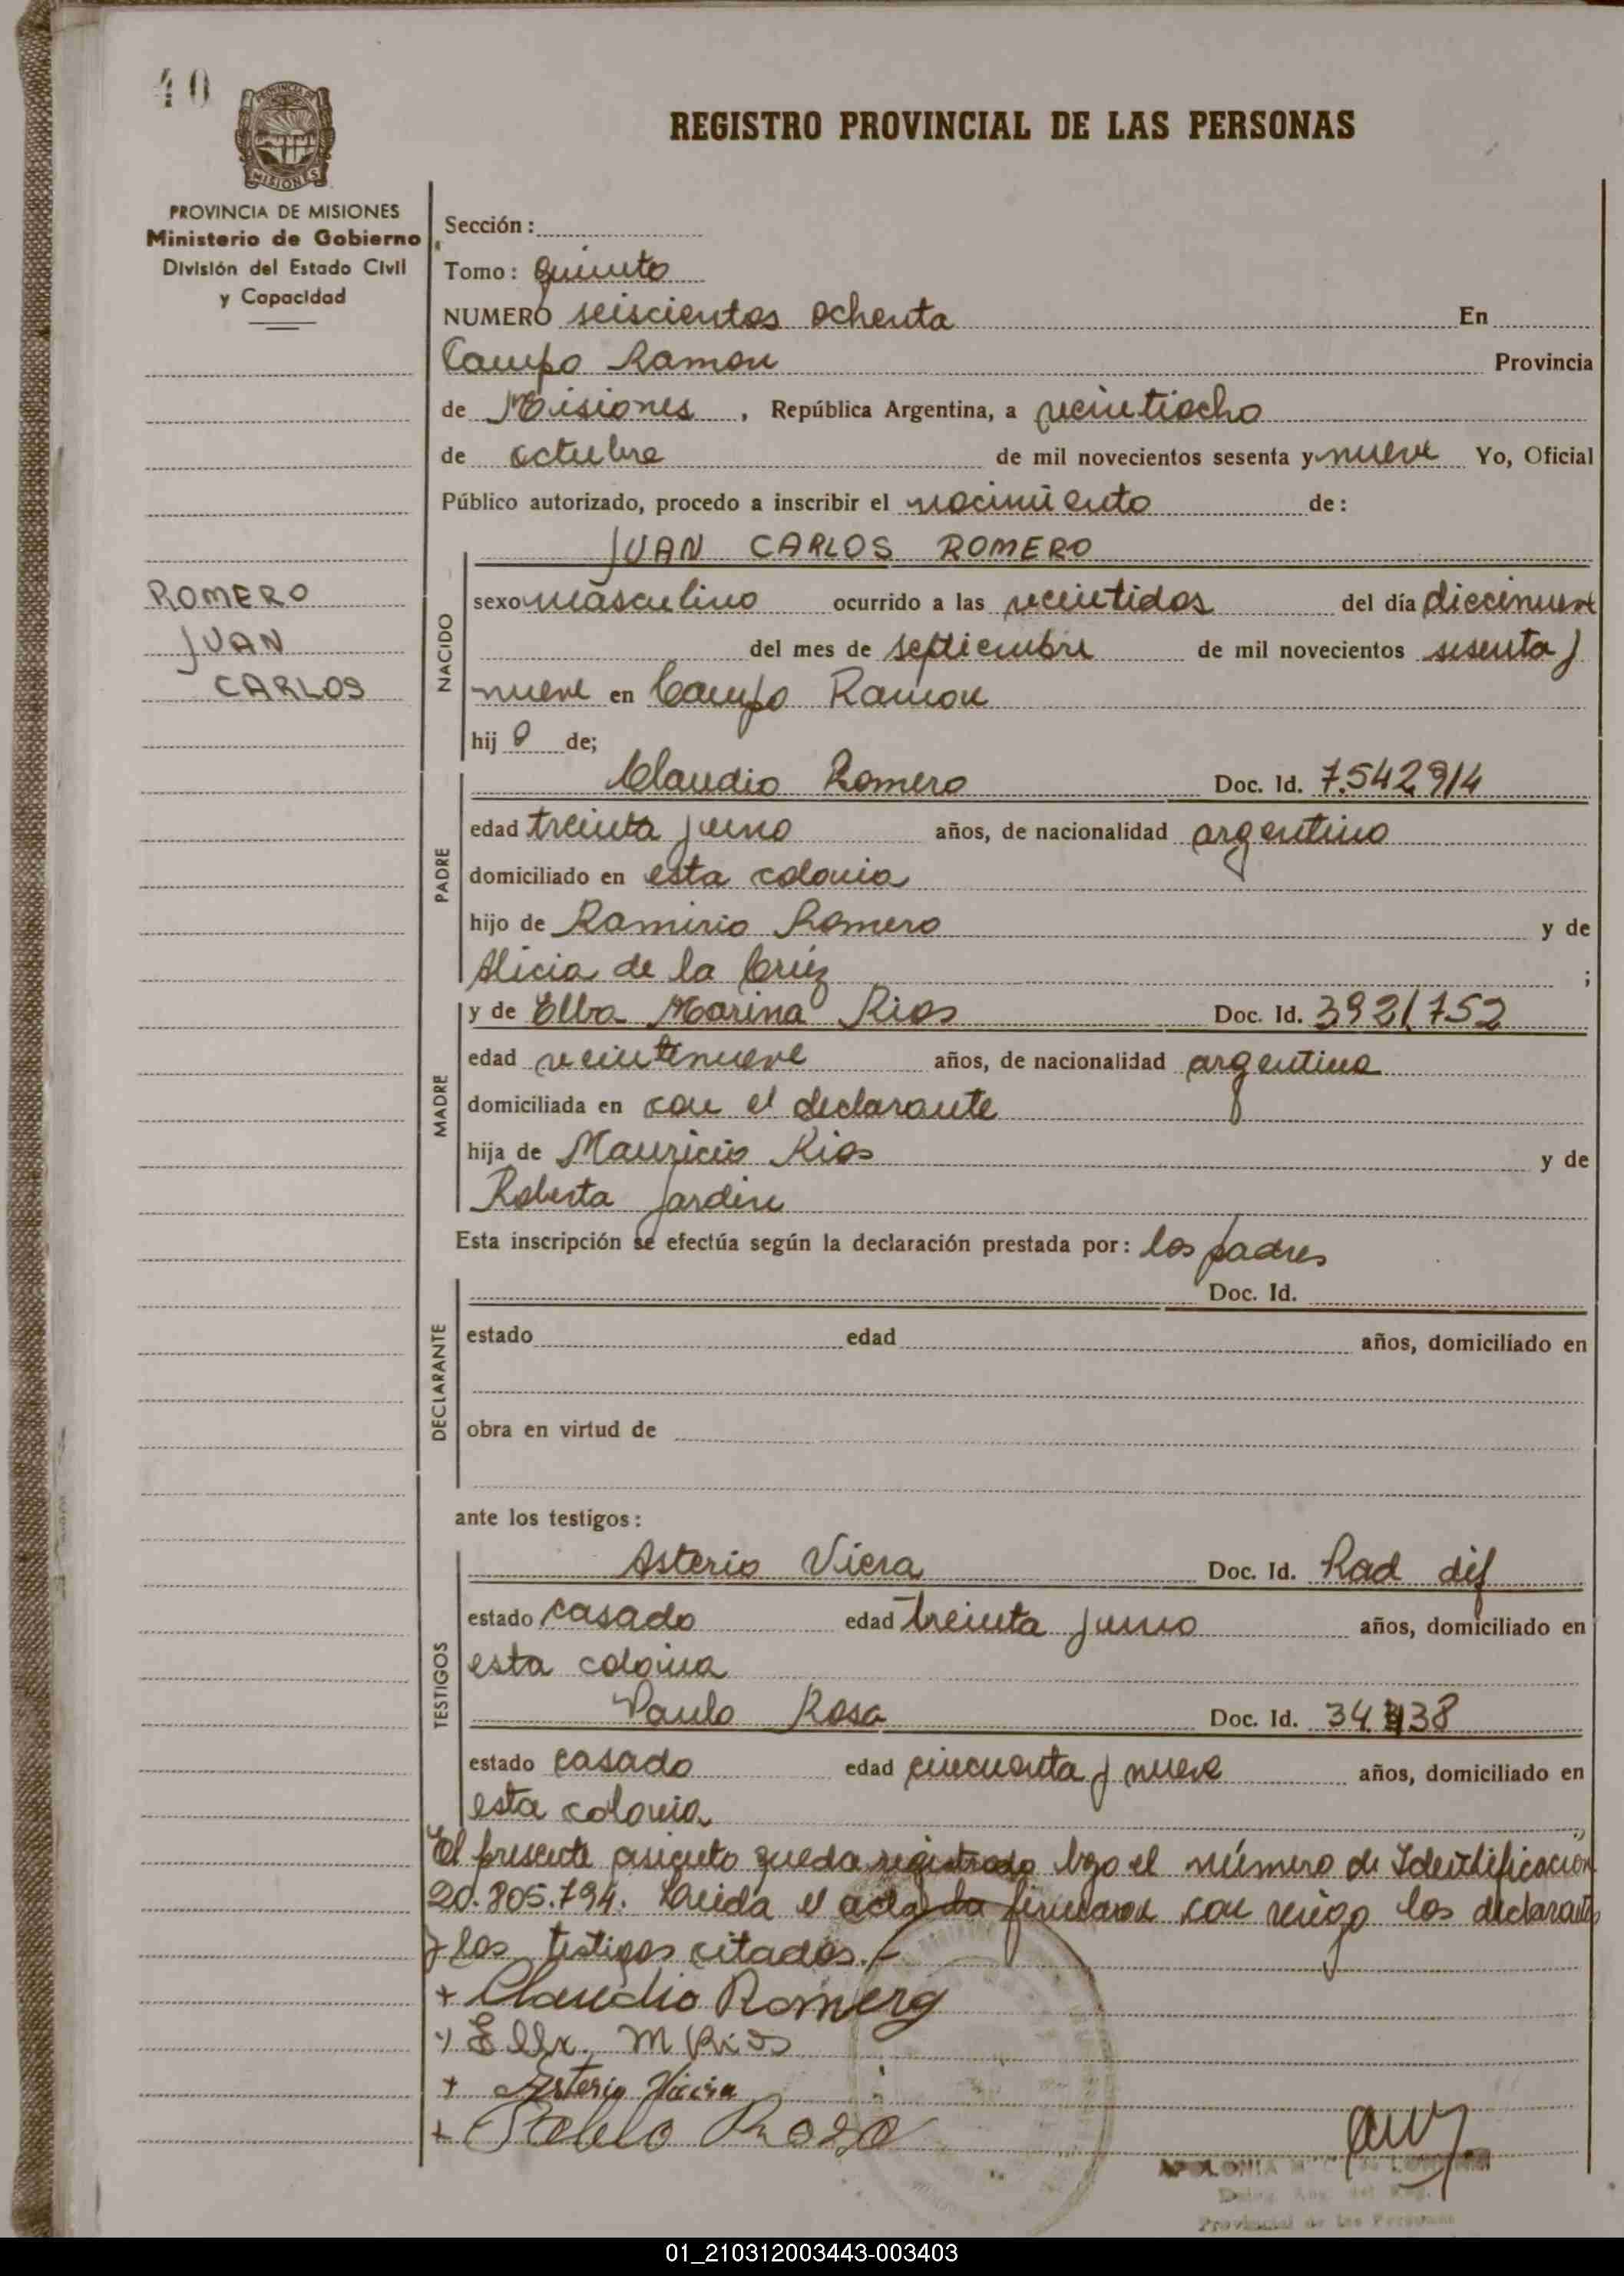 40
REGISTRO PROVINCIAL DE LAS PERSONAS
PROVINCIA DE MISIONES
Ministerio de Gobierno
División del Estado Civil
y Capacidad
ROMERO
JUAN
CARLOS
Sección:
Tomo: quinto
NUMERO seiscientos ochenta En
Campo Ramon Provincia
de Misiones, República Argentina, a veintiocho
de octubre de mil novecientos sesenta y nueve Yo, Oficial
Público autorizado, procedo a inscribir el nacimiento de:
NACIDO
JUAN CARLOS ROMERO
sexo masculino ocurrido a las veintidos del día diecinueve
del mes de septiembre de mil novecientos sesenta y
nueve en Campo Ramon
hij o de;
PADRE
Claudio Romero Doc. Id. 7.542.914
edad treinta y uno años, de nacionalidad argentino
domiciliado en esta colonia
hijo de Ramirio Romero y de
Alicia de la Cruz ;
MADRE
y de Elba Marina Rios Doc. Id. 3921.752
edad veintinueve años, de nacionalidad argentina
domiciliada en con el declarante
hija de Mauricio Rios y de
Roberta Jardin
Esta inscripción se efectúa según la declaración prestada por: los padres
DECLARANTE
Doc. Id.
estado edad años, domiciliado en
obra en virtud de
ante los testigos:
TESTIGOS
Asterio Viera Doc. Id. Rad dif
estado casado edad treinta y uno años, domiciliado en
esta colonia
Paulo Rosa Doc. Id. 34. 38
estado casado edad cincuenta y nueve años, domiciliado en
esta colonia
El presente asiento queda registrado bajo el número de Identificacion
20.805.794. Leida el acta la firmaron con migo los declarantes
y los testigos citados.-
+ Claudio Romero
M Rios
+ Asterio Vieira
+ Rosa
Provincial de las Personas
01_210312003443-003403